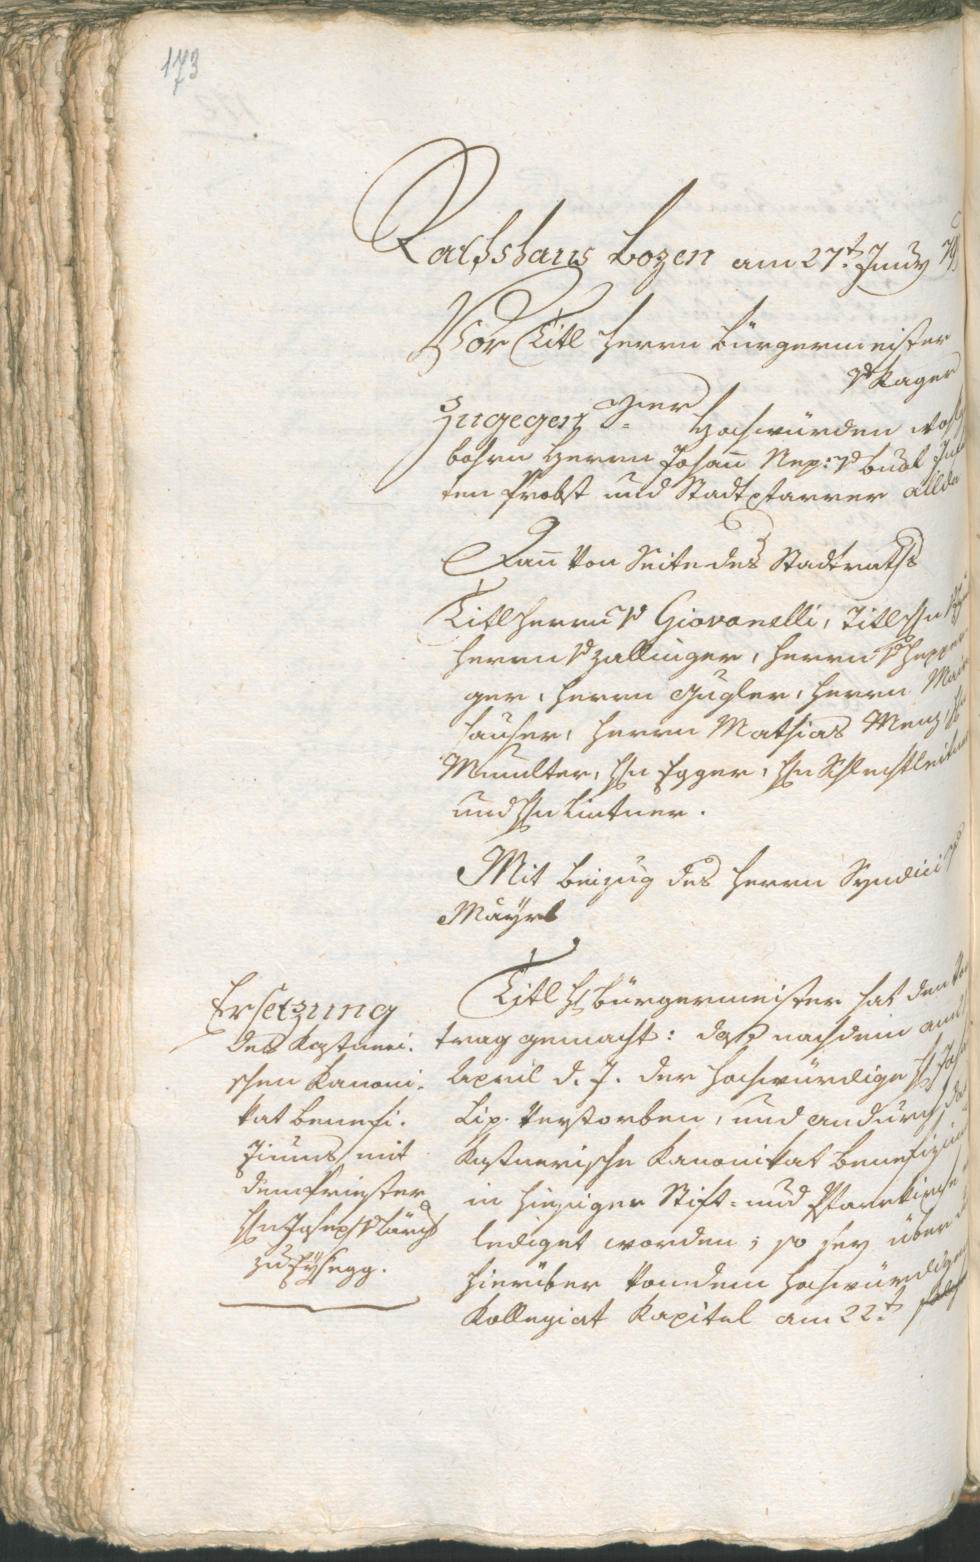 173
Rathshaus Bozen am 27t. Juny
Vor Titl Herrn Bürgermeister
v Kager
Zugegen Ihrer Hochwürden
bohrn Herrn Johann Nep: v Buol
ten Probst und Stadtpfarrer allda
Dann von Seite des Stadtraths
Titl Herrn v Giovanelli, Titl Hrn
Herrn v Zallinger, Herrn v Hepper
ger, Herrn Gugler, Herrn
hauser, Herrn Mathias Menz,
Mumelter, Hrn Egger, Hrn Schlechtleitner
und Hrn Lintner.
Mit Beizug des Herrn Syndici
Mayrl
Ersetzung
des Kastneri-
schen Kanoni-
kat Benefi-
ziums mit
dem Priester
Hrn Joseph v
zu
Titl H Bürgermeister hat den
trag gemacht: daß nachdem am
April d. J. der Hochwürdige H
Lip. verstorben, und andurch das
Kastnerische Kanonikat Benefizium
in hiesiger Stift- und Pfarrkirche
lediget worden; so sey über
hierüber von dem Hochwürdigen
Kollegiat Kapitel am 22t.